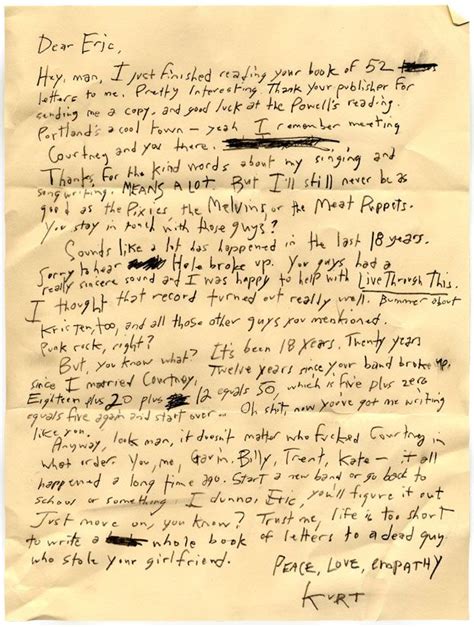 Dear Eric,
Hey, man, I just finished reading your book of 52
letters to me. Pretty Interesting. Thank your publisher for
sending me a copy. and good luck at the Powell's reading.
Portland's a cool town — yeah I remember meeting
Courtney and you there.
Thanks for the kind words about my singing and
songwriting. MEANS A LOT. But I'll still never be as
good as the Pixies, the Melvins, or the Meat Puppets.
You stay in touch with those guys?
Sounds like a lot has happened in the last 18 years.
Sorry to hear Hole broke up. You guys had a
really sincere sound and I was happy to help with Live Through This.
I thought that record turned out really well. Bummer about
Kristen, too, and all those other guys you mentioned.
Punk rock, right?
But, you know what? It's been 18 years. Twenty years
since I married Courtney. Twelve years since your band broke up.
Eighteen plus 20 plus 12 equals 50, which is five plus zero
equals five again and start over.. Oh shit, now you've got me writing
like you.
Anyway, look man, it doesn't matter who fucked Courtney in
what order. You, me, Gavin, Billy, Trent, Kate — it all
happened a long time ago. Start a new band or go back to
school or something. I dunno, Eric, you'll figure it out
Just move on, you know? Trust me, life is too short
to write a whole book of letters to a dead guy
who stole your girlfriend.
PEACE, LOVE, EMPATHY
KURT